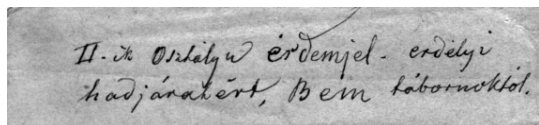 II-ik Osztályu érdemjel - erdélyi
hadjáratért, Bem tábornoktól.